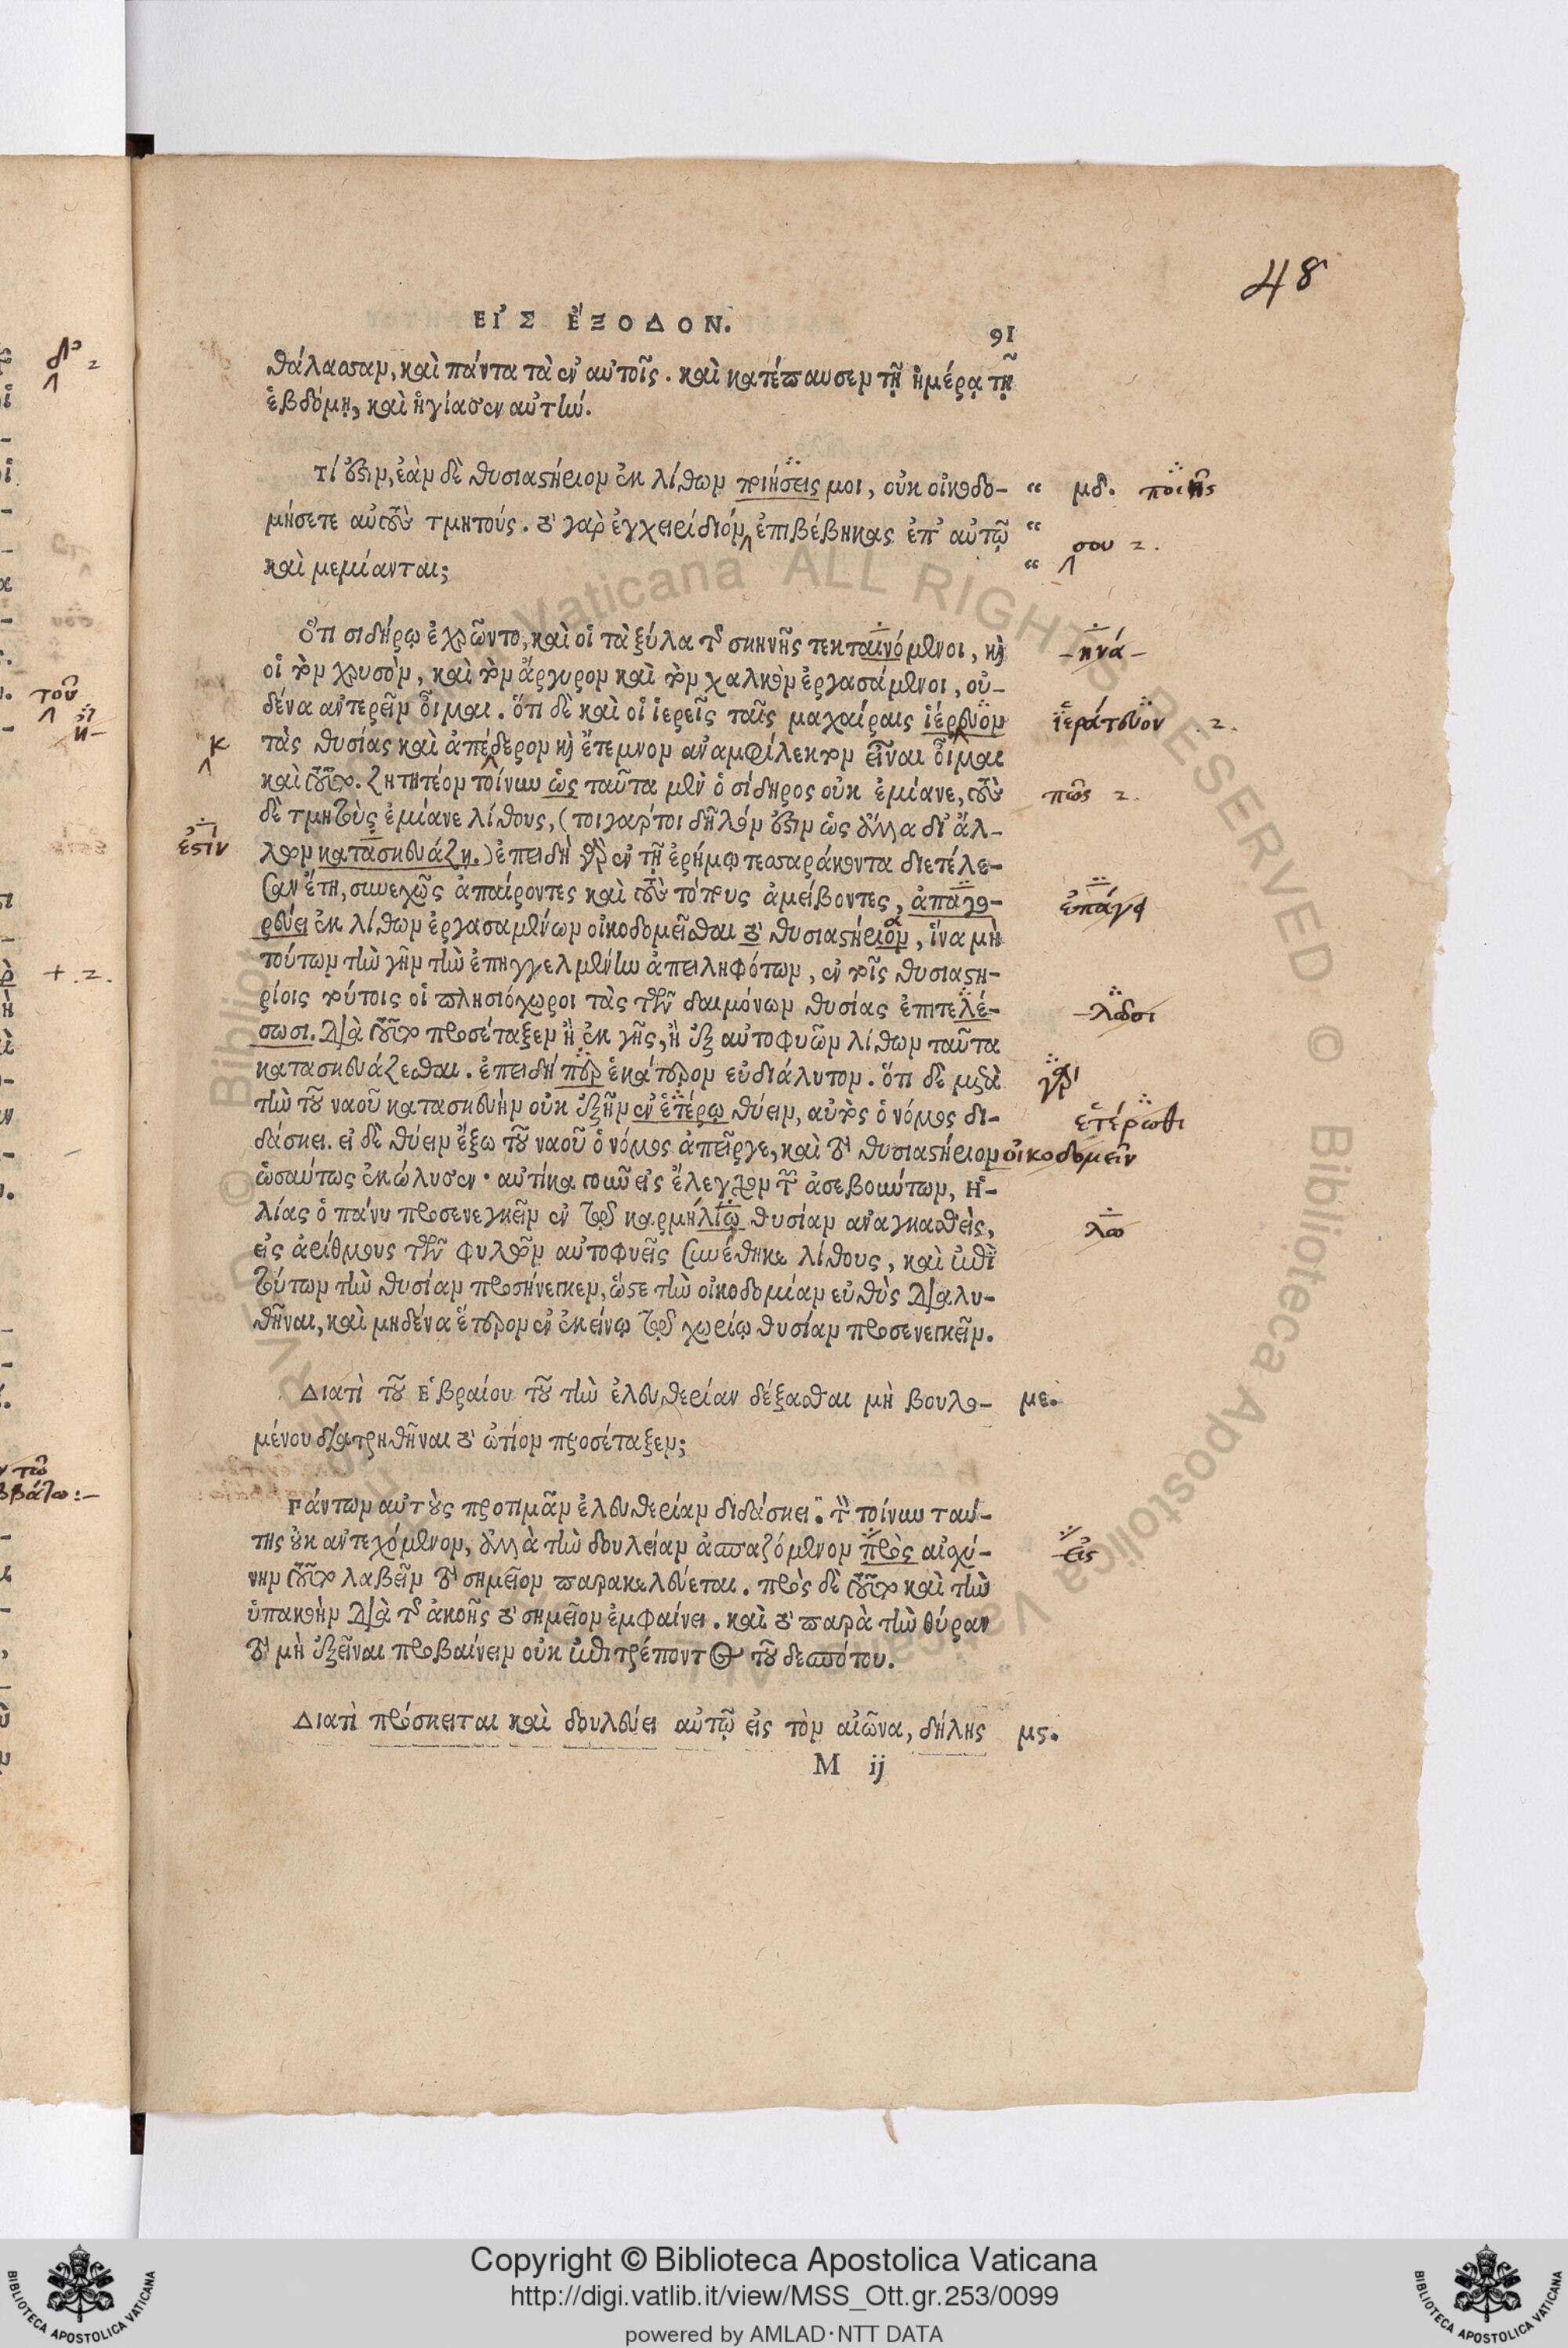 48
ΕΙ᾿Σ Ε῎ΞΟΔΟΝ.
91
θάλασσαν, καὶ πάντα τὰ ἐν αὐτοῖς. καὶ κατέπαυσεν τῇ ἡμέρᾳ τῇ
ἑβδόμῃ, καὶ ἡγίασεν αὐτήν.
Τί ἐστιν, ἐὰν δὲ θυσιαστήριον ἐκ λίθων ποιήσεις μοι, οὐκ οἰκοδο- “ μδ. ποιῇς
μήσετε αὐτοὺς τμητούς. τὸ γὰρ ἐγχειρίδιόν ἐπιβέβηκας ἐπ' αὐτῷ “ σου 2.
καὶ μεμίανται; “
Ὅτι σιδήρῳ ἐχρῶντο, καὶ οἱ τὰ ξύλα τῆς σκηνῆς τεκταινόμενοι, καὶ -ηνά-
οἱ τὸν χρυσὸν, καὶ τὸν ἄργυρον καὶ τὸν χαλκὸν ἐργασάμενοι, οὐ-
δένα ἀντερεῖν οἶμαι. ὅτι δὲ καὶ οἱ ἱερεῖς ταῖς μαχαίραις ἱέρευον ἱεράτευον 2.
κ τὰς θυσίας καὶ ἀπέδερον καὶ ἔτεμνον ἀναμφίλεκτον εἶναι οἶμαι
καὶ τοῦτο. ζητητέον τοίνυν ὡς ταῦτα μὲν ὁ σίδηρος οὐκ ἐμίανε, τοὺς πῶς 2.
δὲ τμητοὺς ἐμίανε λίθους, (τοιγάρτοι δῆλόν ἐστιν ὡς ἄλλα δι' ἄλ-
ἐστὶν λων κατασκευάζῃ.) ἐπειδὴ γὰρ ἐν τῇ ἐρήμῳ τεσσαράκοντα διετέλε-
σαν ἔτη, συνεχῶς ἀπαίροντες καὶ τοὺς τόπους ἀμείβοντες, ἀπαγο-
ρεύει ἐκ λίθων ἐργασαμένων οἰκοδομεῖσθαι τὸ θυσιαστήριον, ἵνα μὴ
τούτων τὴν γῆν τὴν ἐπηγγελμένην ἀπειληφότων, ἐν τοῖς θυσιαστη-
ρίοις τούτοις οἱ πλησιόχωροι τὰς τῶν δαιμόνων θυσίας ἐπιτελέ- -λῶσι
σωσι. διὰ τοῦτο προσέταξεν ἢ ἐκ γῆς, ἢ ἐξ αὐτοφυῶν λίθων ταῦτα
κατασκευάζεσθαι. ἐπειδήπερ ἑκάτερον εὐδιάλυτον. ὅτι δὲ μετὰ
τὴν τοῦ ναοῦ κατασκευὴν οὐκ ἐξῆν ἐν ἑτέρῳ θύειν, αὐτὸς ὁ νόμος δι- ἑτέρωθι
δάσκει. εἰ δὲ θύειν ἔξω τοῦ ναοῦ ὁ νόμος ἀπεῖργε, καὶ τὸ θυσιαστήριον οἰκοδομεῖν
ὡσαύτως ἐκώλυσεν. αὐτίκα γοῦν εἰς ἔλεγχον τῶν ἀσεβούντων, Ἡ-
λίας ὁ πάνυ προσενεγκεῖν ἐν τῷ καρμηλίῳ θυσίαν ἀναγκασθεὶς, λω
εἰς ἀρίθμους τῶν φυλῶν αὐτοφυεῖς συνέθηκε λίθους, καὶ ἐπὶ
τούτων τὴν θυσίαν προσήνεγκεν, ὥστε τὴν οἰκοδομίαν εὐθὺς διαλυ-
θῆναι, καὶ μηδένα ἕτερον ἐν ἐκείνῳ τῷ χωρίῳ θυσίαν προσενεγκεῖν.
Διατὶ τοῦ Ἑβραίου τοῦ τὴν ἐλευθερίαν δέξασθαι μὴ βουλο- με.
μένου διατρηθῆναι τὸ ὠτίον προσέταξεν;
Πάντων αὐτοὺς προτιμᾶν ἐλευθερίαν διδάσκει. τὸν τοίνυν ταύ-
της οὐκ ἀντεχόμενον, ἀλλὰ τὴν δουλείαν ἀσπαζόμενον πρὸς αἰσχύ- -εἰς
νην τοῦτο λαβεῖν τὸ σημεῖον παρακελεύεται. πρὸς δὲ τοῦτο καὶ τὴν
ὑπακοὴν διὰ τῆς ἀκοῆς τὸ σημεῖον ἐμφαίνει. καὶ τὸ παρὰ τὴν θύραν
τὸ μὴ ἐξεῖναι προβαίνειν οὐκ ἐπιτρέποντος τοῦ δεσπότου.
Διατὶ πρόσκειται καὶ δουλεύει αὐτῷ εἰς τὸν αἰῶνα, δήλης μς.
M ij
Copyright © Biblioteca Apostolica Vaticana
http://digi.vatlib.it/view/MSS_Ott.gr.253/0099
powered by AMLAD·NTT DATA